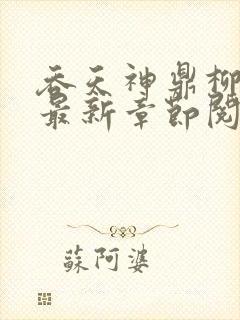 吞天神鼎柳
最新章節閱
蘇阿婆